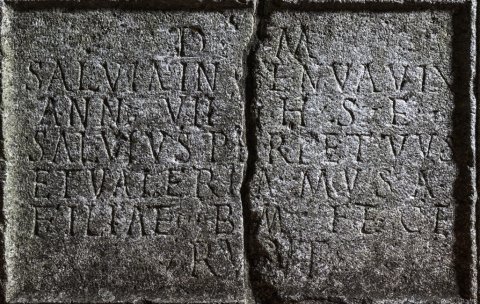 D M
SALVIA INGENVA VIX
ANN · VII H · S · E ·
SALVIVS PERPETVVS
ET VALERIA MVSA
FILIAE B M FECE
RVNT